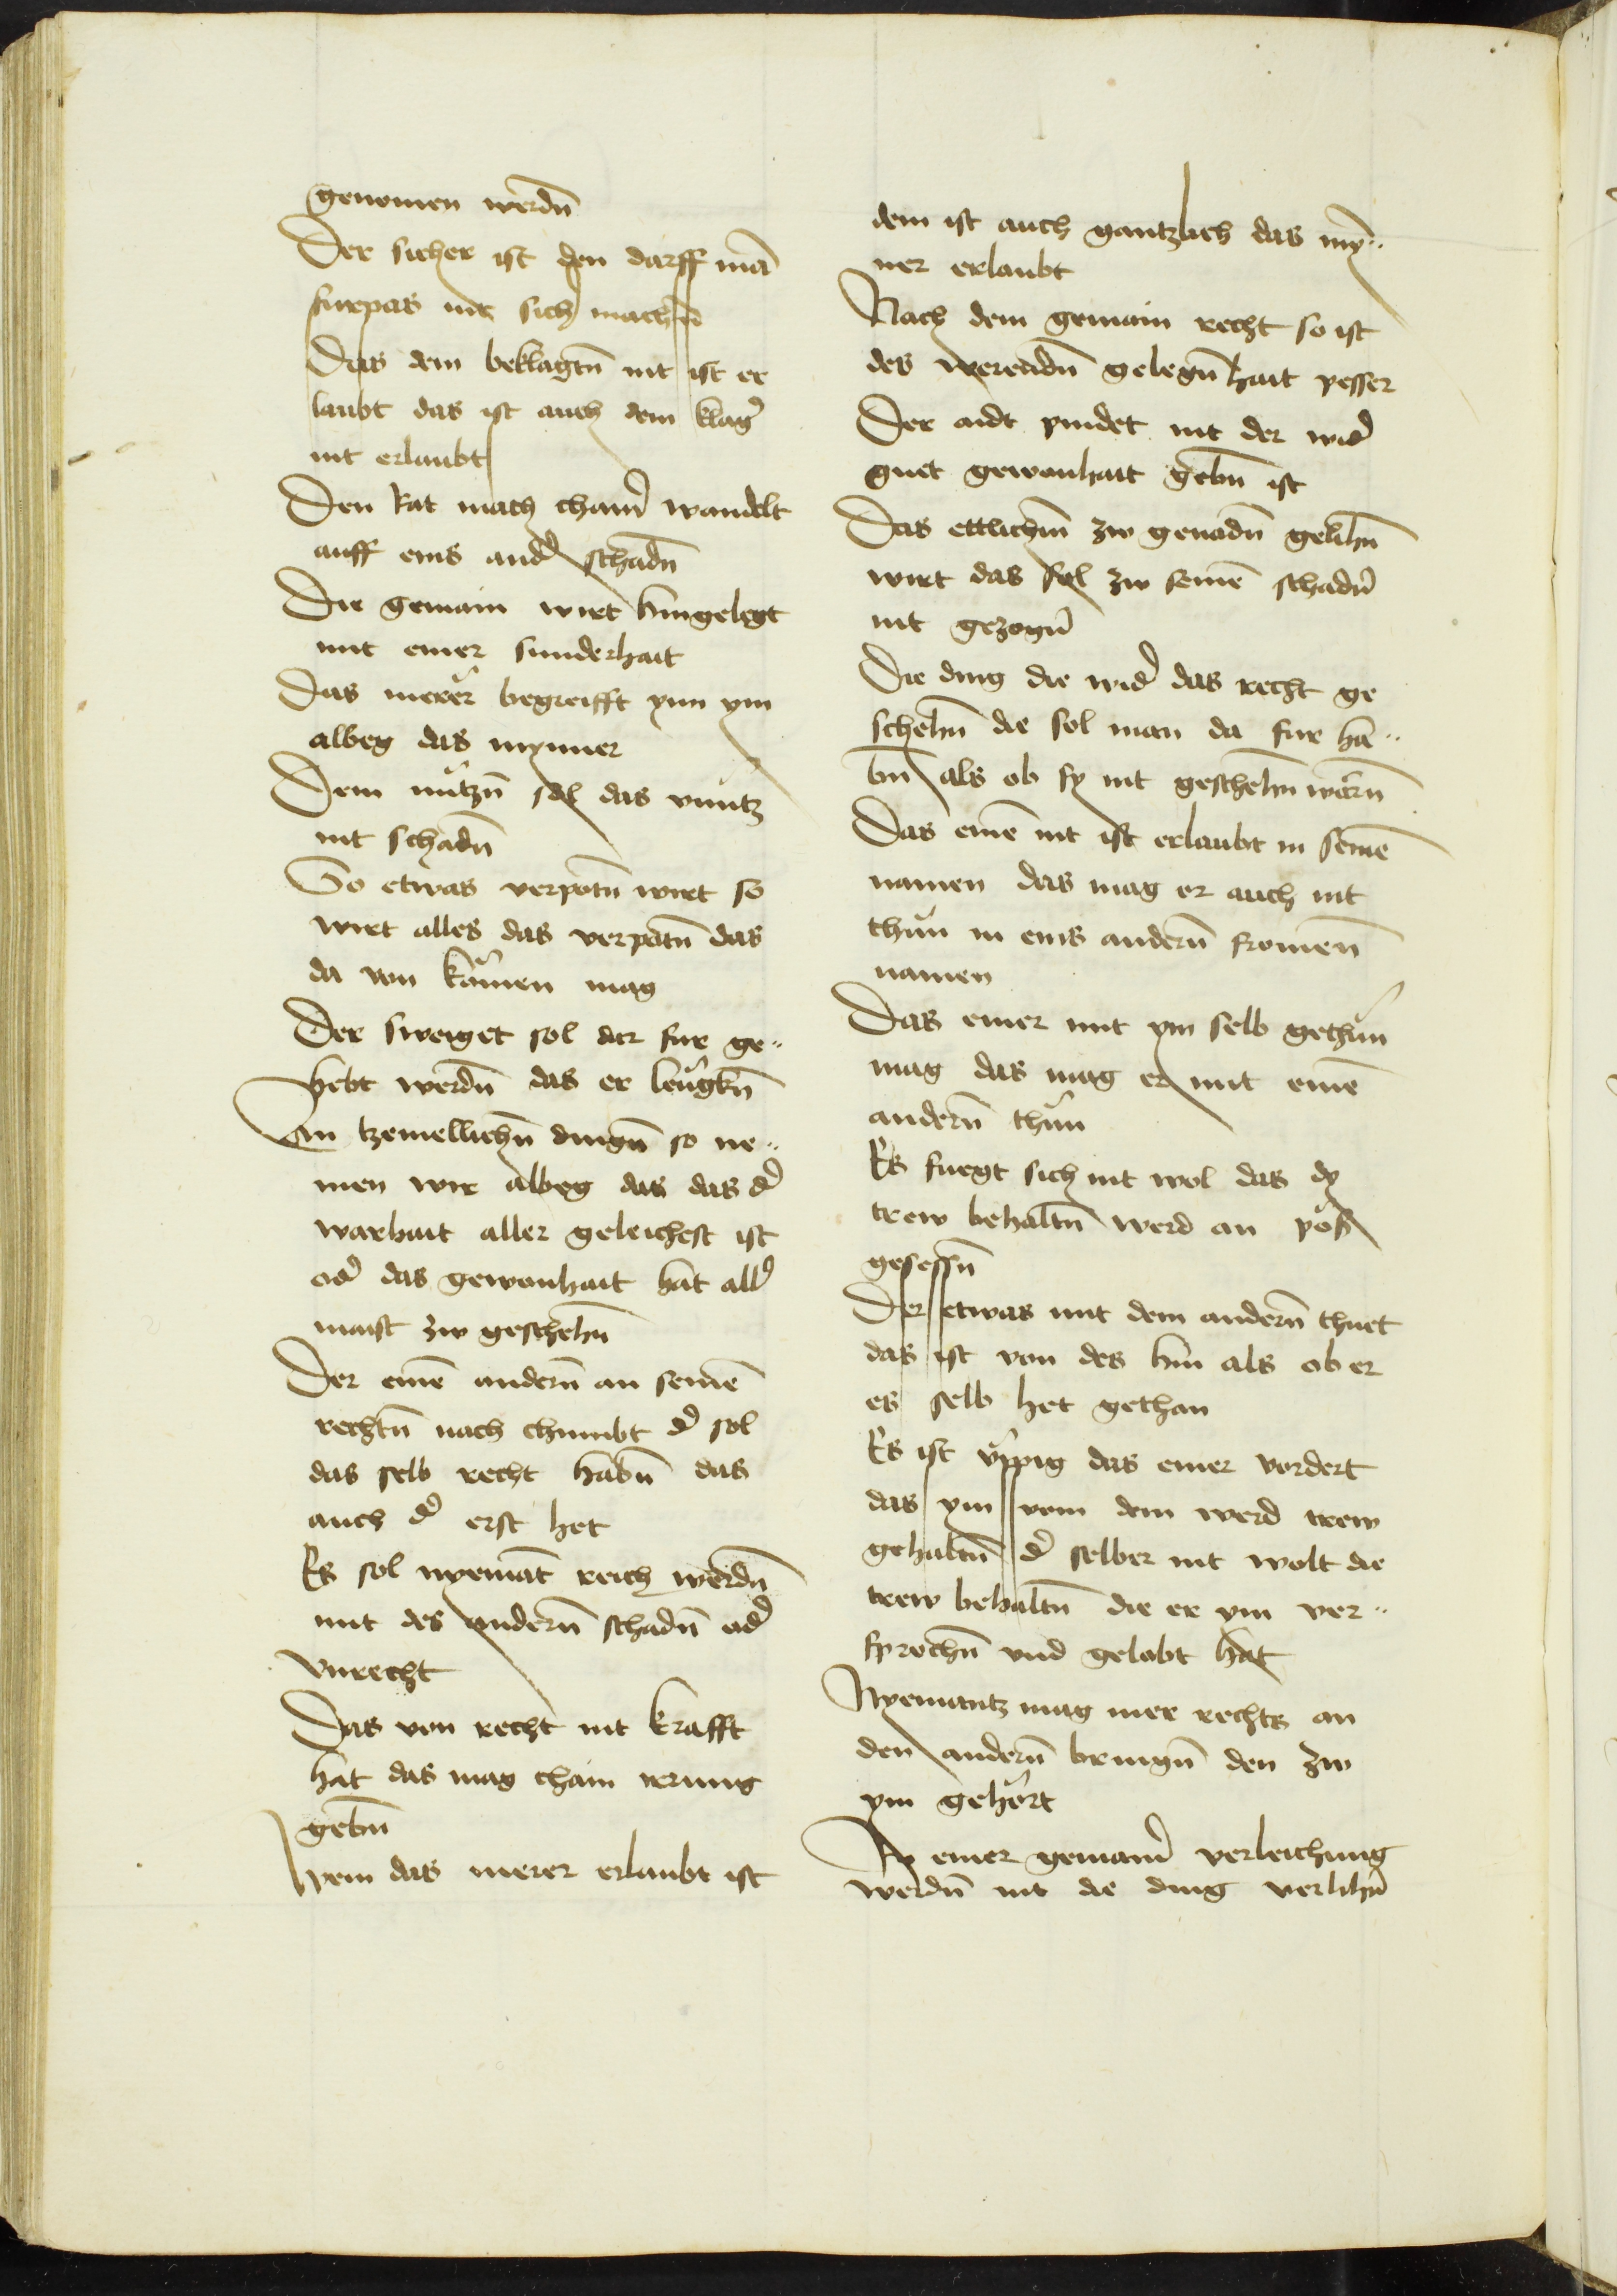 genomen werdn̄
Der sicher ist den darff mā
furpas nit sich machn̄
Das dem beklagtn̄ nit ist er
laubt das ist auch dem klag͛
nit erlaubt
Den Rat mach cham͛ wandelt
auff eins and͛ schadn̄
Die gemain wirt hingelegt
mit einer sunderhait
Das merer begreifft ynn ym
albeg das mynner
Dem nůtzn̄ sol das vnutz
nit schadn̄
So etwas verpotn̄ wirt so
wirt alles das verpotn̄ das
da von kŏmen mag
Der sweiget sol dar fur ge„
hebt werdn̄ das er leugkn̄
In tzymellichn̄ dingn̄ so ne„
men wir albeg das das d͛
warhait aller geleichest ist
od͛ das gewonhait hat all͛
maist zw geschehn̄
Der einē andern̄ an seinē
rechtn̄ nach chumbt d͛ sol
das selb recht habn̄ das
auch d͛ erst het
Es sol nyemāt reich werdn̄
mit des andern̄ schadn̄ od͛
vnrecht
Das von recht nit krafft
hat das mag chain irrung
gebn̄
Wem das merer erlaubt ist
dem ist auch gantzlich das my̅„
ner erlaubt
Nach dem gemain recht so ist
des werendn̄ gelegn̄hait pesser
Der aidt pindet nit der wid͛
guet gewonhait gebn̄ ist
Das ettlichm̄ zw genadn̄ gelihn̄
wirt das sol zw seinē schadn̄
nit gezogn̄
Die ding die wid͛ das recht ge
schehn̄ die sol man da fur ha„
bn̄ als ob sy nit geschehn̄ wern̄
Das einē nit ist erlaubt in seinē
namen das mag er auch nit
thůn in eins andern̄ fromen̄
namen
Das einer mit ym selb gethůn
mag das mag er mit einē
andern̄ thůn
Es fuegt sich nit wol das dy
trew behaltn̄ werd an pŏs
gesessn̄
Der etwas mit dem andern̄ thuet
das ist von des hin als ob er
es selb het gethan
Es ist ŭppig das einer vordert
das ym vom dem werd trew
gehaltn̄ d͛ selber nit wolt die
trew behaltn̄ die er ym ver„
sprochn̄ vnd gelobt hat
Nyemantz mag mer rechts an
den andern̄ bringn̄ den zw
ym gehŏrt
In einer gemain͛ verleichung
werdn̄ nit die ding verlihn̄